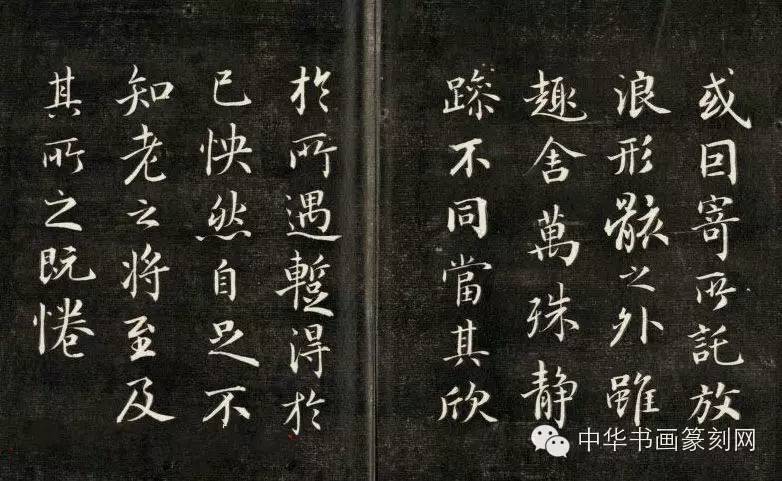 或因寄所託放
浪形骸之外雖
趣舍萬殊静
躁不同當其欣
於所遇蹔得於
己怏然自足不
知老之将至及
其所之既惓
中华书画篆刻网